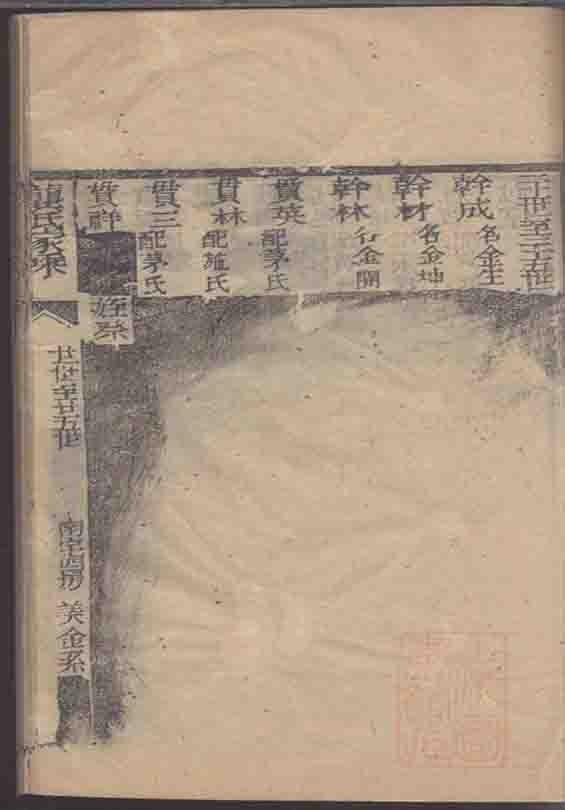 二十世至二十五世
幹成 名金生
幹材 名金坤
幹林 名金開
貫英 配茅氏
貫林 配施氏
貫三 配茅氏
貫祥
氏家乘
廿世至廿五世
南宅四房 美金系